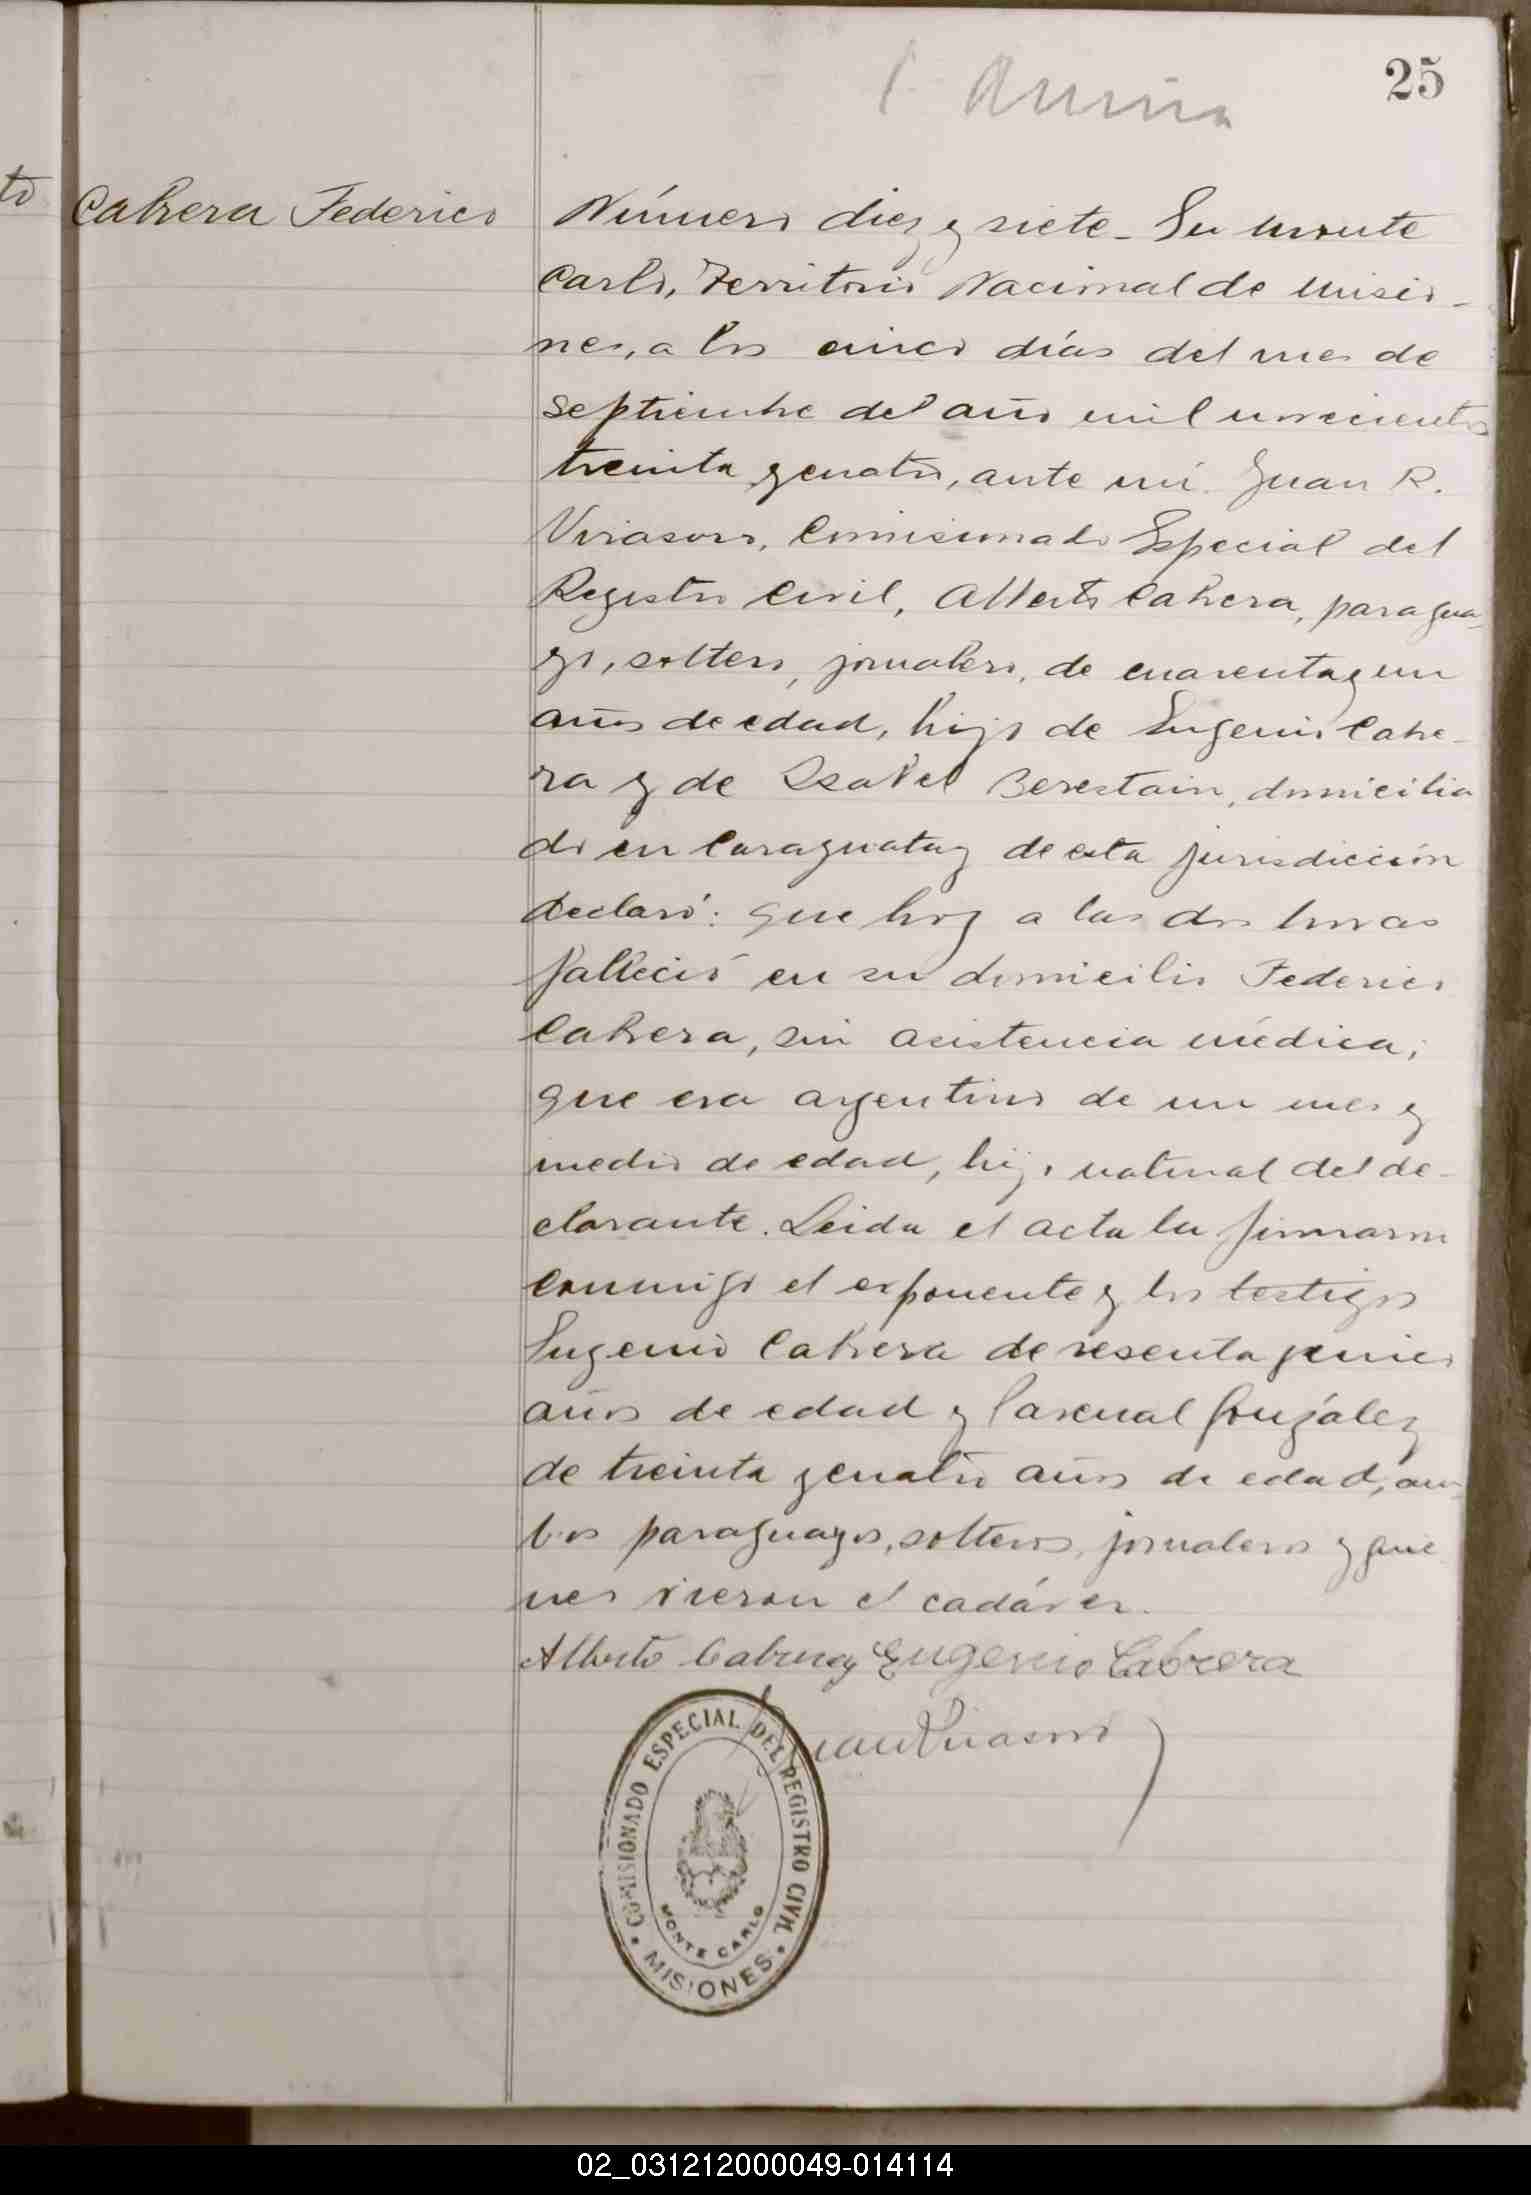 25
Cabrera Federico
Número diez y siete - En Monte
Carlo, Territorio Nacional de Misio-
nes, a los cinco días del mes de
septiembre del año mil novecientos
treinta y cuatro, ante mí Juan R.
Virasoro, Comisionado Especial del
Registro Civil, Alberto Cabrera, paragua-
yo, soltero, jornalero, de cuarenta y un
años de edad, hijo de Eugenio Cabre-
ra y de Isabel Berestain, domicilia
do en Caraguatay de esta jurisdicción
declaró: que hoy a las dos horas
falleció en su domicilio Federico
Cabrera, sin asistencia médica;
que era argentino de un mes y
medio de edad, hijo natural del de-
clarante. Leida el acta la firmaron
conmigo el exponente y los testigos
Eugenio Cabrera de sesenta y cinco
años de edad y Pascual González
de treinta y cuatro años de edad, am-
bos paraguayos, solteros, jornaleros y quie
nes vieron el cadáver.
Alberto Cabrera Eugenio Cabrera
Juan R Virasoro
COMISIONADO ESPECIAL DEL REGISTRO CIVIL
MONTE CARLO
MISIONES
02_031212000049-014114